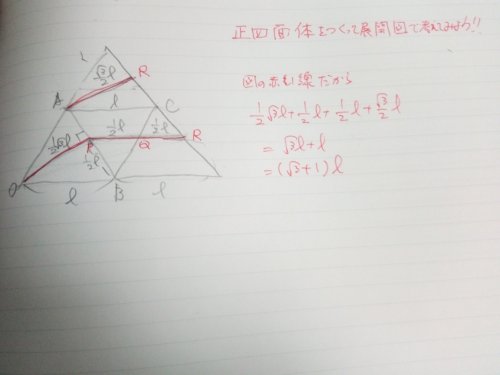 正四面体をつくって展開図で考えてみよう!!
図の赤い線だから
1/2√3l+1/2l+1/2l+√3/2l
=√3l+l
=(√3+1)l
l
√3/2l
R
A
l
C
1/2√3l
P
1/2l
1/2l
R
Q
1/2l
O
l
B
l